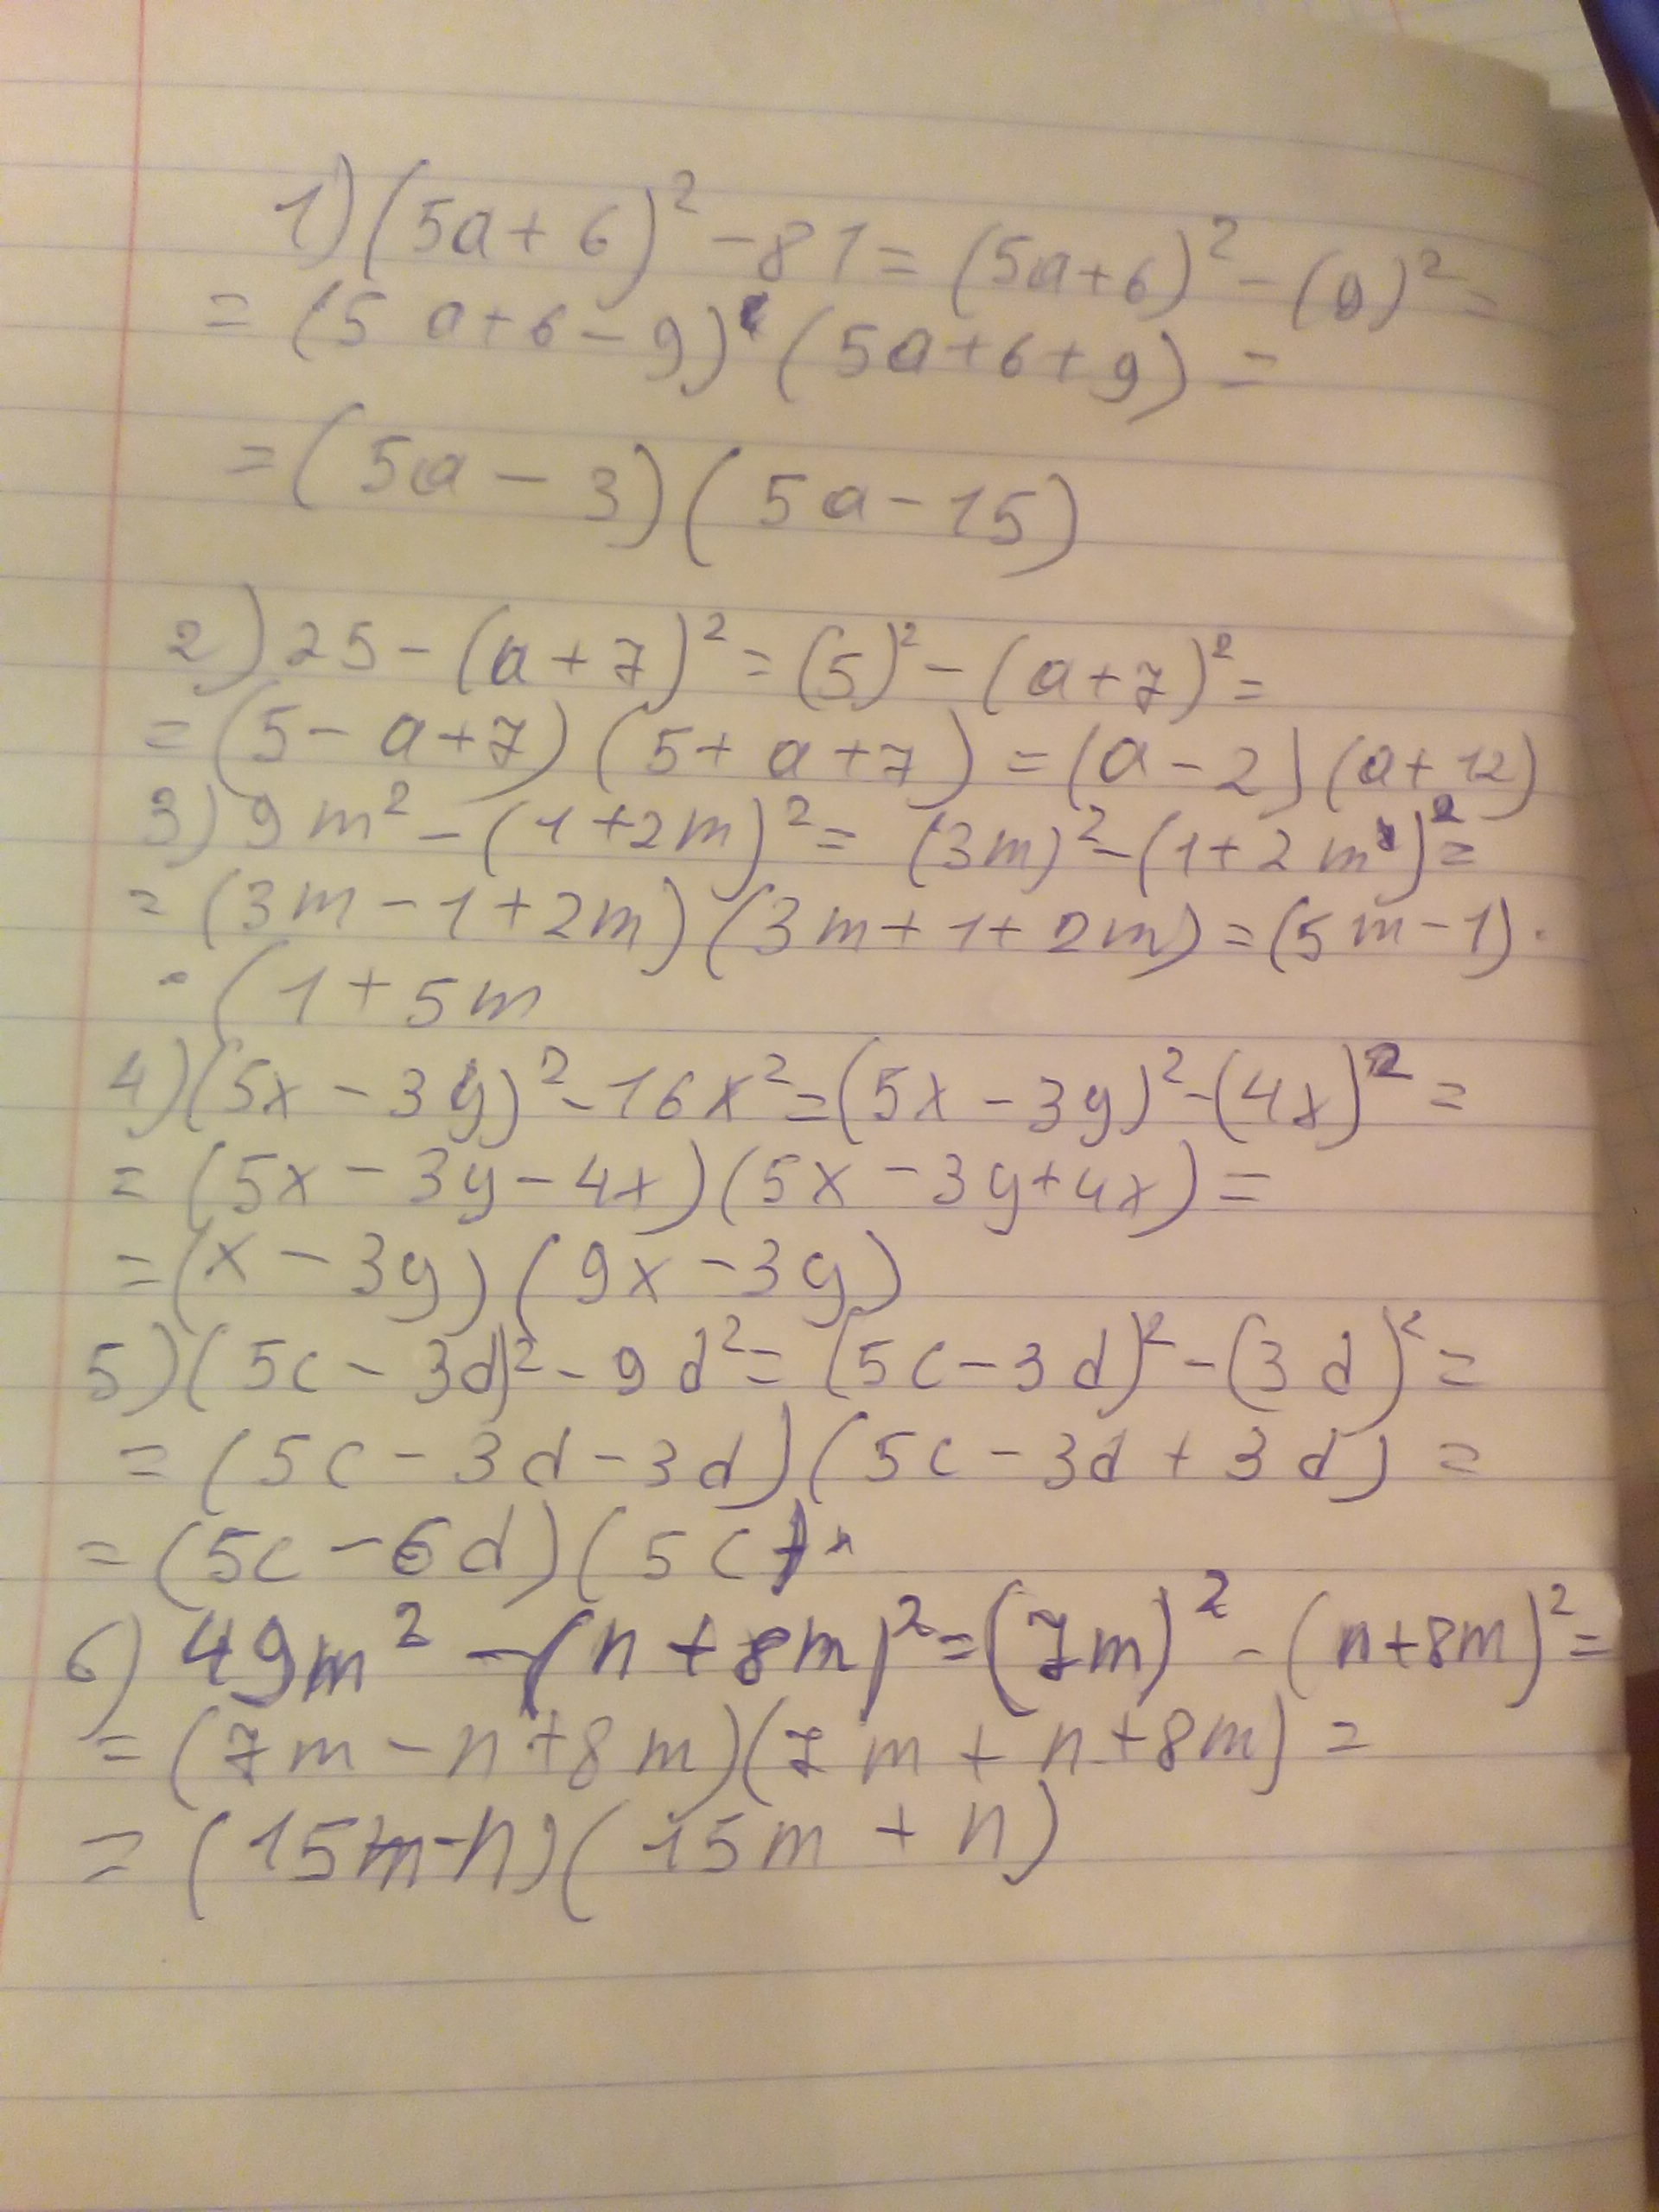 1) (5a+6)² - 81 = (5a+6)² - (9)² =
= (5a+6-9) (5a+6+9) =
= (5a - 3)(5a - 15)
2) 25 - (a+7)² = (5)² - (a+7)² =
= (5 - a+7) (5+ a+7) = (a-2) (a+12)
3) 9m² - (1+2m)² = (3m)² - (1+2m)² =
= (3m - 1+2m) (3m+1+2m) = (5m-1) ·
· (1+5m
4) (5x - 3y)² - 16x² = (5x - 3y)² - (4x)² =
= (5x - 3y - 4x) (5x - 3y+4x) =
= (x - 3y) (9x - 3y)
5) (5c - 3d)² - 9d² = (5c - 3d)² - (3d)² =
= (5c - 3d - 3d) (5c - 3d + 3d) =
= (5c - 6d) (5c)
6) 49m² - (n + 8m)² = (7m)² - (n+8m)² =
= (7m - n+8m) (7m + n+8m) =
= (15m-n) (15m + n)